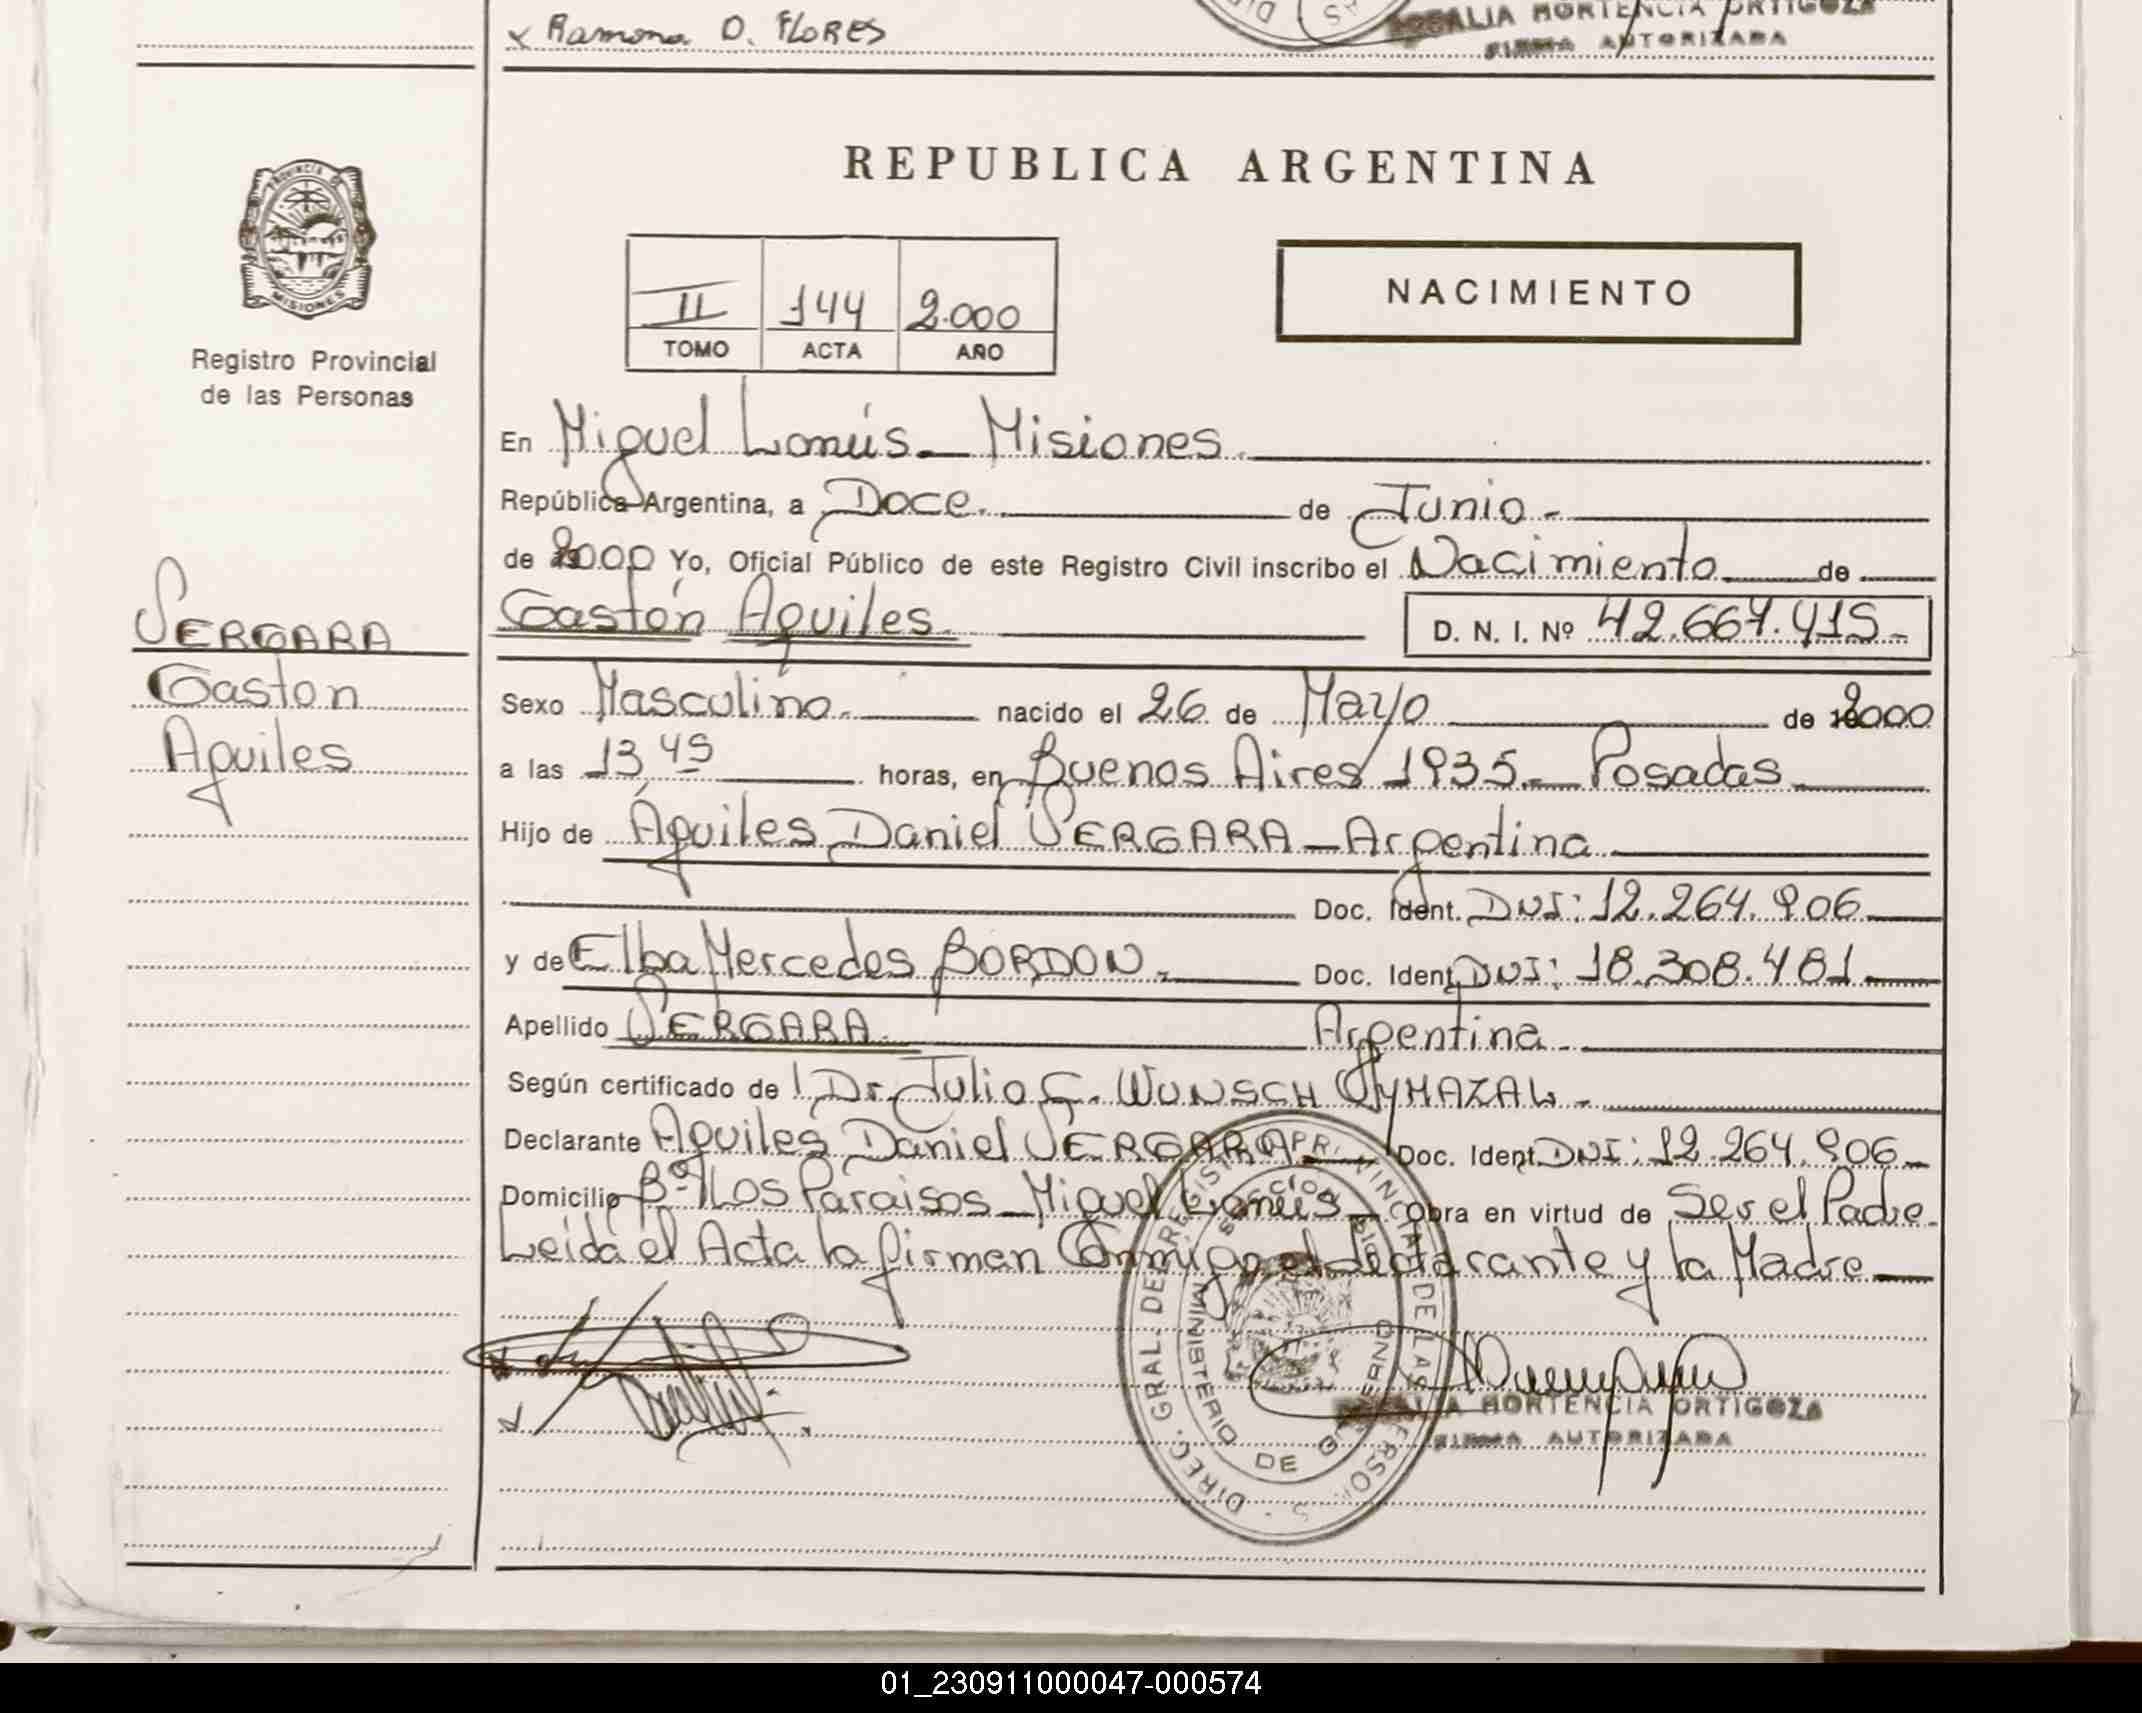 x Ramona O. FLORES
HORTENCIA ORTIGOZA
FIRMA AUTORIZADA
REPUBLICA ARGENTINA
PROVINCIA DE
MISIONES
Registro Provincial
de las Personas
II 144 2.000
TOMO ACTA AÑO
NACIMIENTO
En Miguel Lanús - Misiones.
República Argentina, a Doce. de Junio -
de 2000 Yo, Oficial Público de este Registro Civil inscribo el Nacimiento de
Gastón Aquiles. D. N. I. Nº 42.667.415-
VERGARA
Gaston
Aquiles
Sexo Masculino. nacido el 26 de Mayo de 2000
a las 13,45 horas, en Buenos Aires 1935.- Posadas
Hijo de Aquiles Daniel VERGARA - Argentina
Doc. Ident. DNI: 12.264.906
y de Elba Mercedes BORDON. Doc. Ident. DNI: 18.308.481
Apellido VERGARA. Argentina
Según certificado de Dr. Julio C. WUNSCH
Declarante Aquiles Daniel VERGARA. Doc. Ident. DNI: 12.264.906
Domicilio Bº Los Paraisos - Miguel Lanús - obra en virtud de Ser el Padre.
Leida el Acta la firman Conmigo el declarante y la Madre
HORTENCIA ORTIGOZA
FIRMA AUTORIZADA
MINISTERIO DE GOBIERNO
01_230911000047-000574